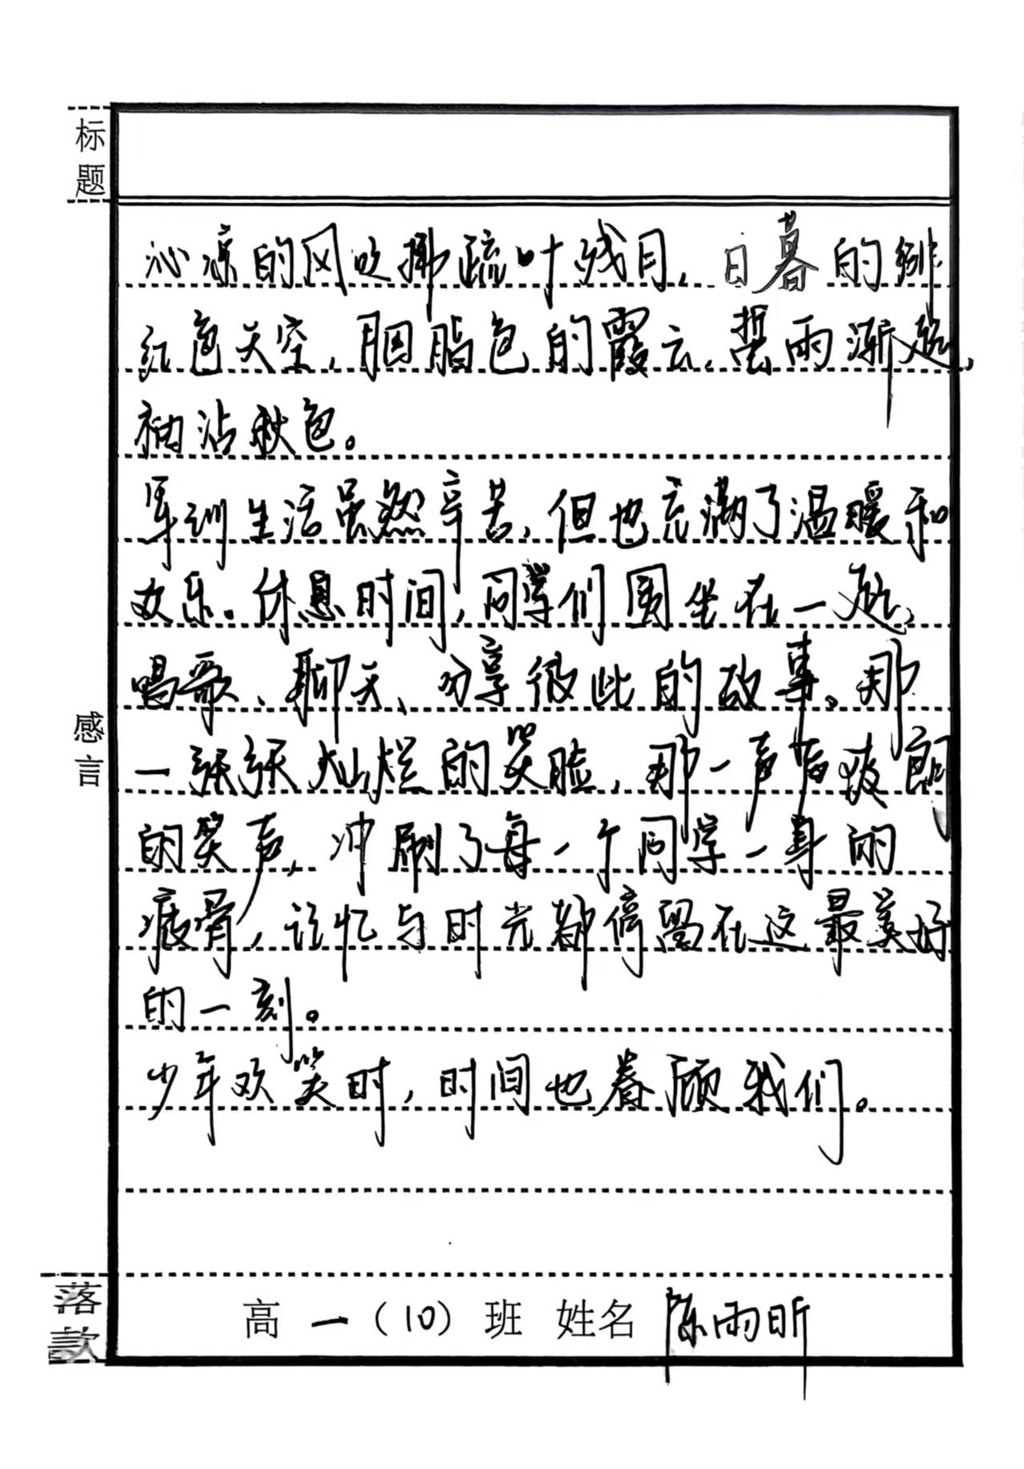 标题
沁凉的风吹拂疏叶残月，日暮的绯
红色天空，胭脂色的霞云，雨渐起，
袖沾秋色。
军训生活虽然辛苦，但也充满了温暖和
欢乐。休息时间，同学们围坐在一起，
唱歌、聊天、分享彼此的故事。那
感言
一张张灿烂的笑脸，那一声声爽朗
的笑声，冲刷了每一个同学一身的
疲惫，记忆与时光都停留在这最美好
的一刻。
少年欢笑时，时间也眷顾我们。
落款
高一（10）班 姓名 陈雨昕